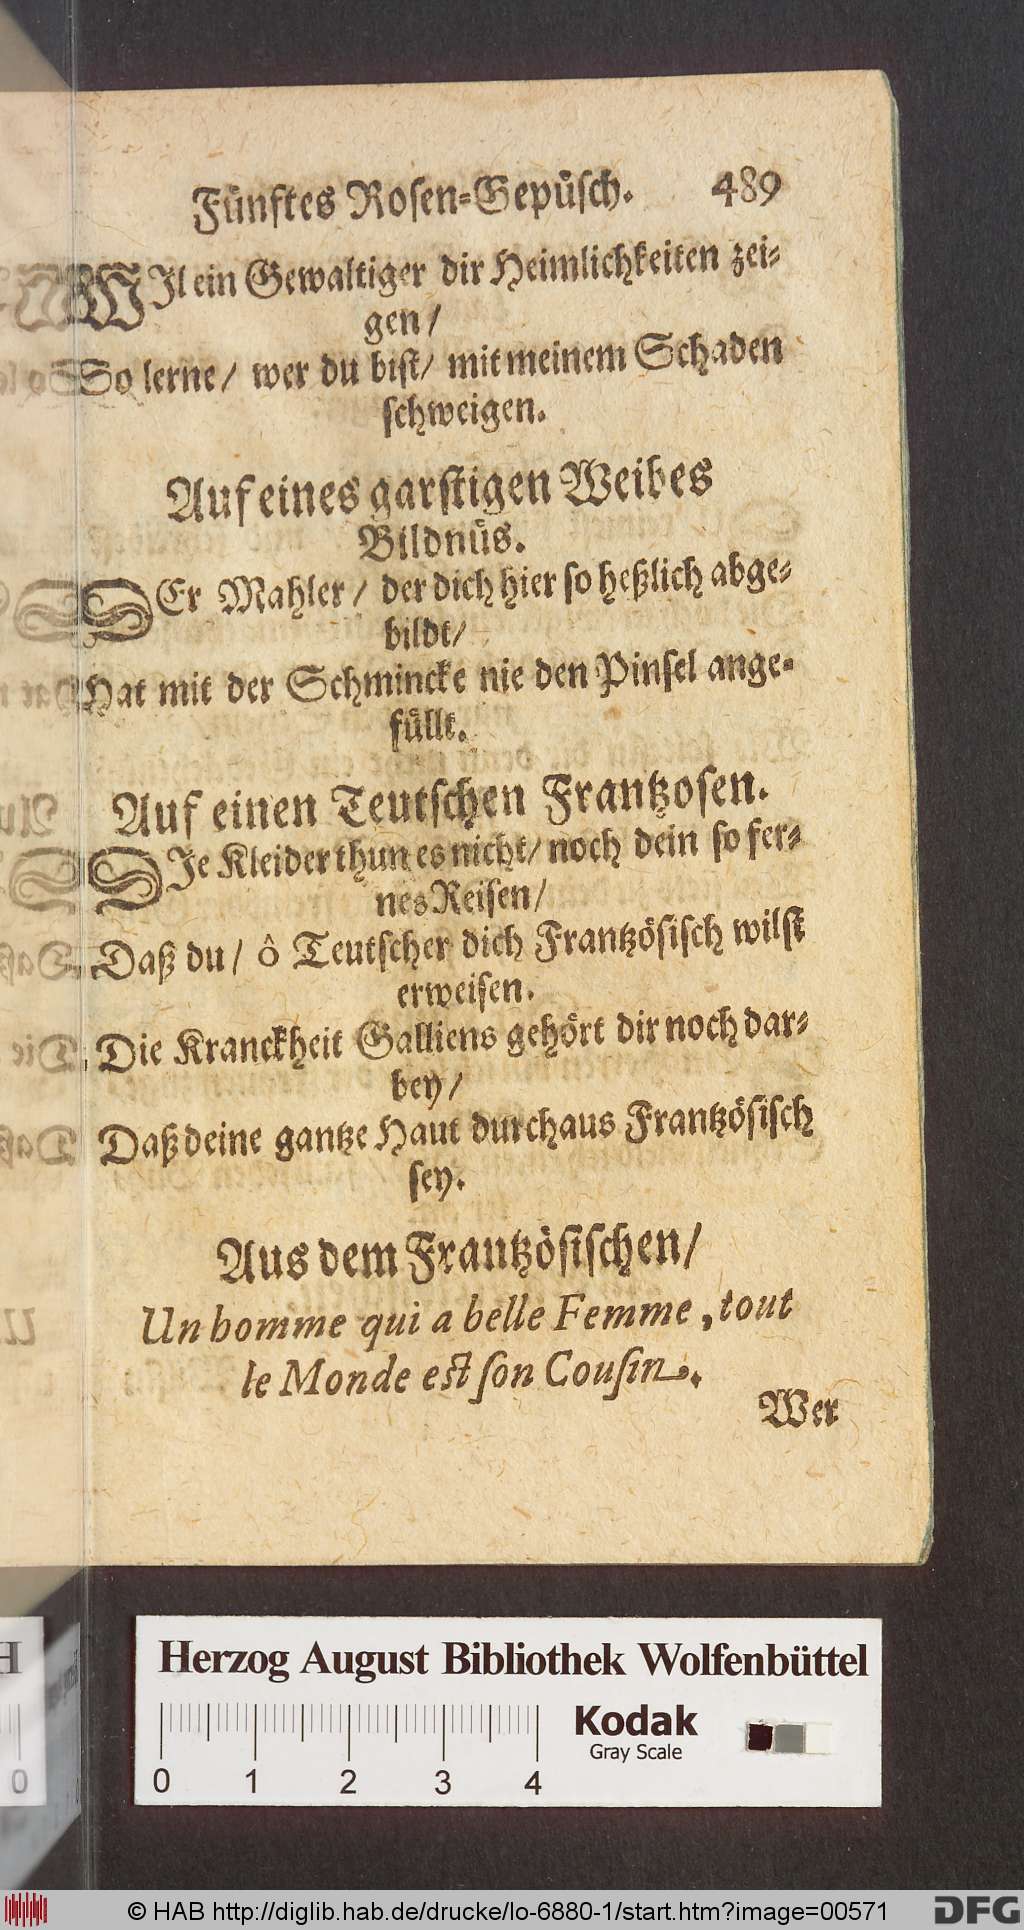 Fünftes Rosen-Gepüsch. 489
WIl ein Gewaltiger dir Heimlichkeiten zei-
gen/
So lerne/ wer du bist/ mit meinem Schaden
schweigen.
Auf eines garstigen Weibes
Bildnüs.
DEr Mahler/ der dich hier so heßlich abge-
bildt/
Hat mit der Schmincke nie den Pinsel ange-
füllt.
Auf einen Teutschen Frantzosen.
DIe Kleider thun es nicht/ noch dein so fer-
nes Reisen/
Daß du/ ô Teutscher dich Frantzösisch wilst
erweisen.
Die Kranckheit Galliens gehört dir noch dar-
bey/
Daß deine gantze Haut durchaus Frantzösisch
sey.
Aus dem Frantzösischen/
Un homme qui a belle Femme, tout
le Monde est son Cousin.
Wer
Herzog August Bibliothek Wolfenbüttel
Kodak
Gray Scale
0 1 2 3 4
© HAB http://diglib.hab.de/drucke/lo-6880-1/start.htm?image=00571
DFG